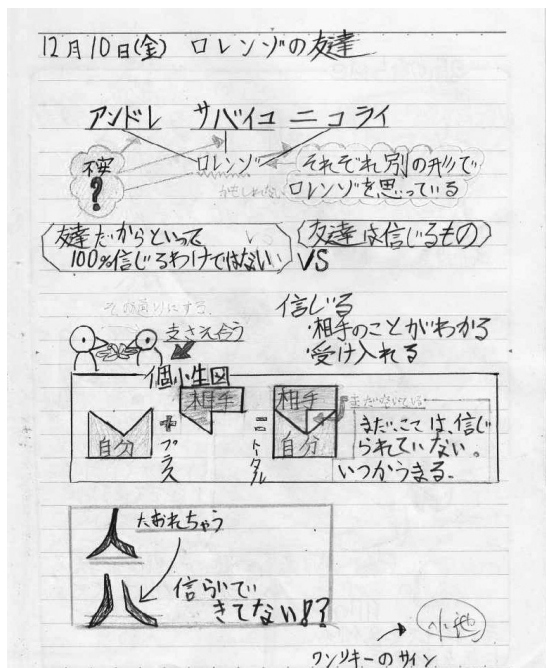 12月10日(金) ロレンゾの友達
アンドレ サバイユ ニコライ
不安
?
ロレンゾ
かもしれない
それぞれ別の形で
ロレンゾを思っている
友達だからといって
100%信じるわけではない
VS
友達は信じるもの
その通りにする
支さえ合う
信じる
・相手のことがわかる
・受け入れる
個小生図
自分
+
プラス
相手
=
トータル
相手
自分
まだ、ここては、信じ
られていない。
いつかうまる。
たおれちゃう
信らいでい
きてない!?
小池
ワンリキーのサイン